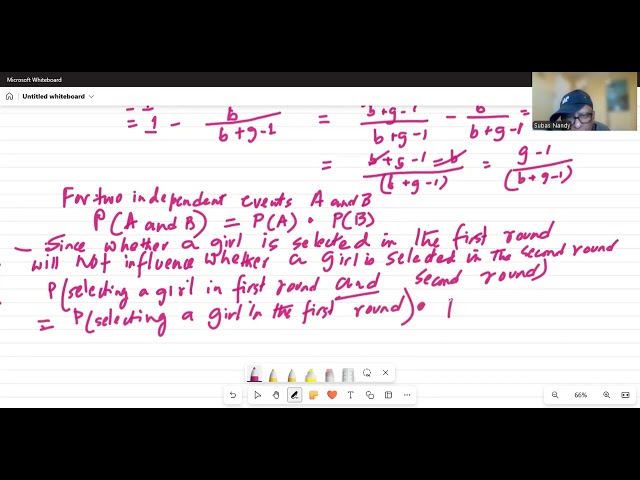 Microsoft Whiteboard
Untitled whiteboard
= 1 - b/(b+g-1) = (b+g-1)/(b+g-1) - b/(b+g-1) =
= (b+g-1-b)/(b+g-1) = (g-1)/(b+g-1)
For two independent events A and B
P(A and B) = P(A) • P(B)
- Since whether a girl is selected in the first round
will not influence whether a girl is selected in the second round
P(selecting a girl in first round and second round)
= P(selecting a girl in the first round) •
Subas Nandy
66%